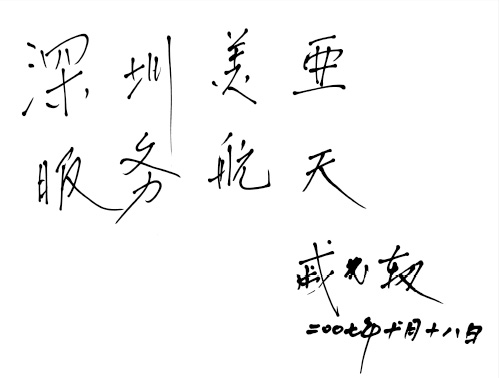 深圳美亜
服务航天
戚发轫
二00七年十月十八日